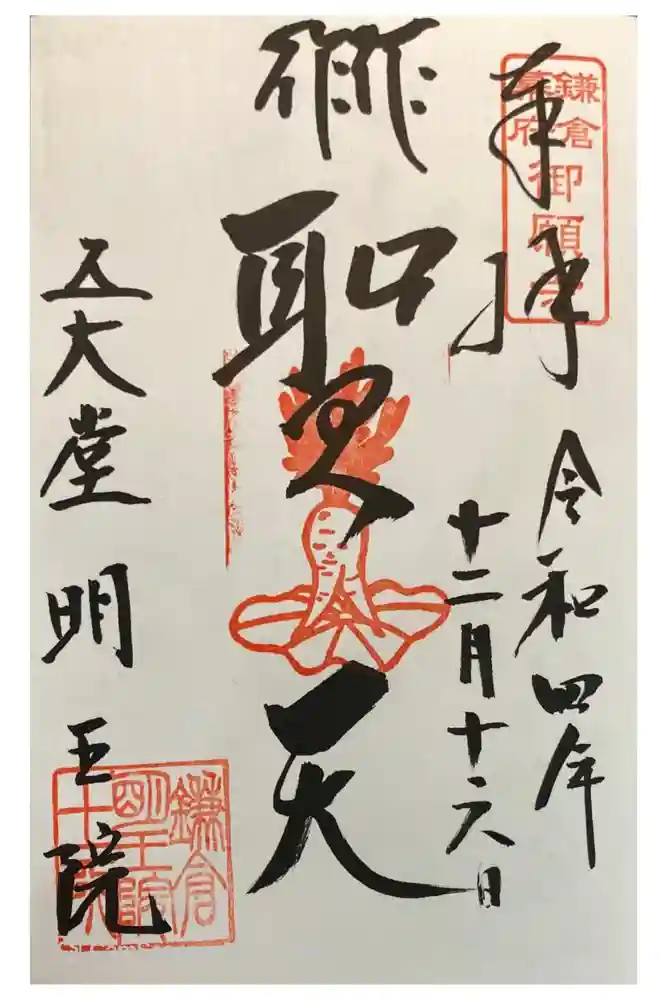 鎌倉
幕府
御願寺
奉拝
令和四年
十二月十六日
御聖天
五大堂 明王院
鎌倉
明王院